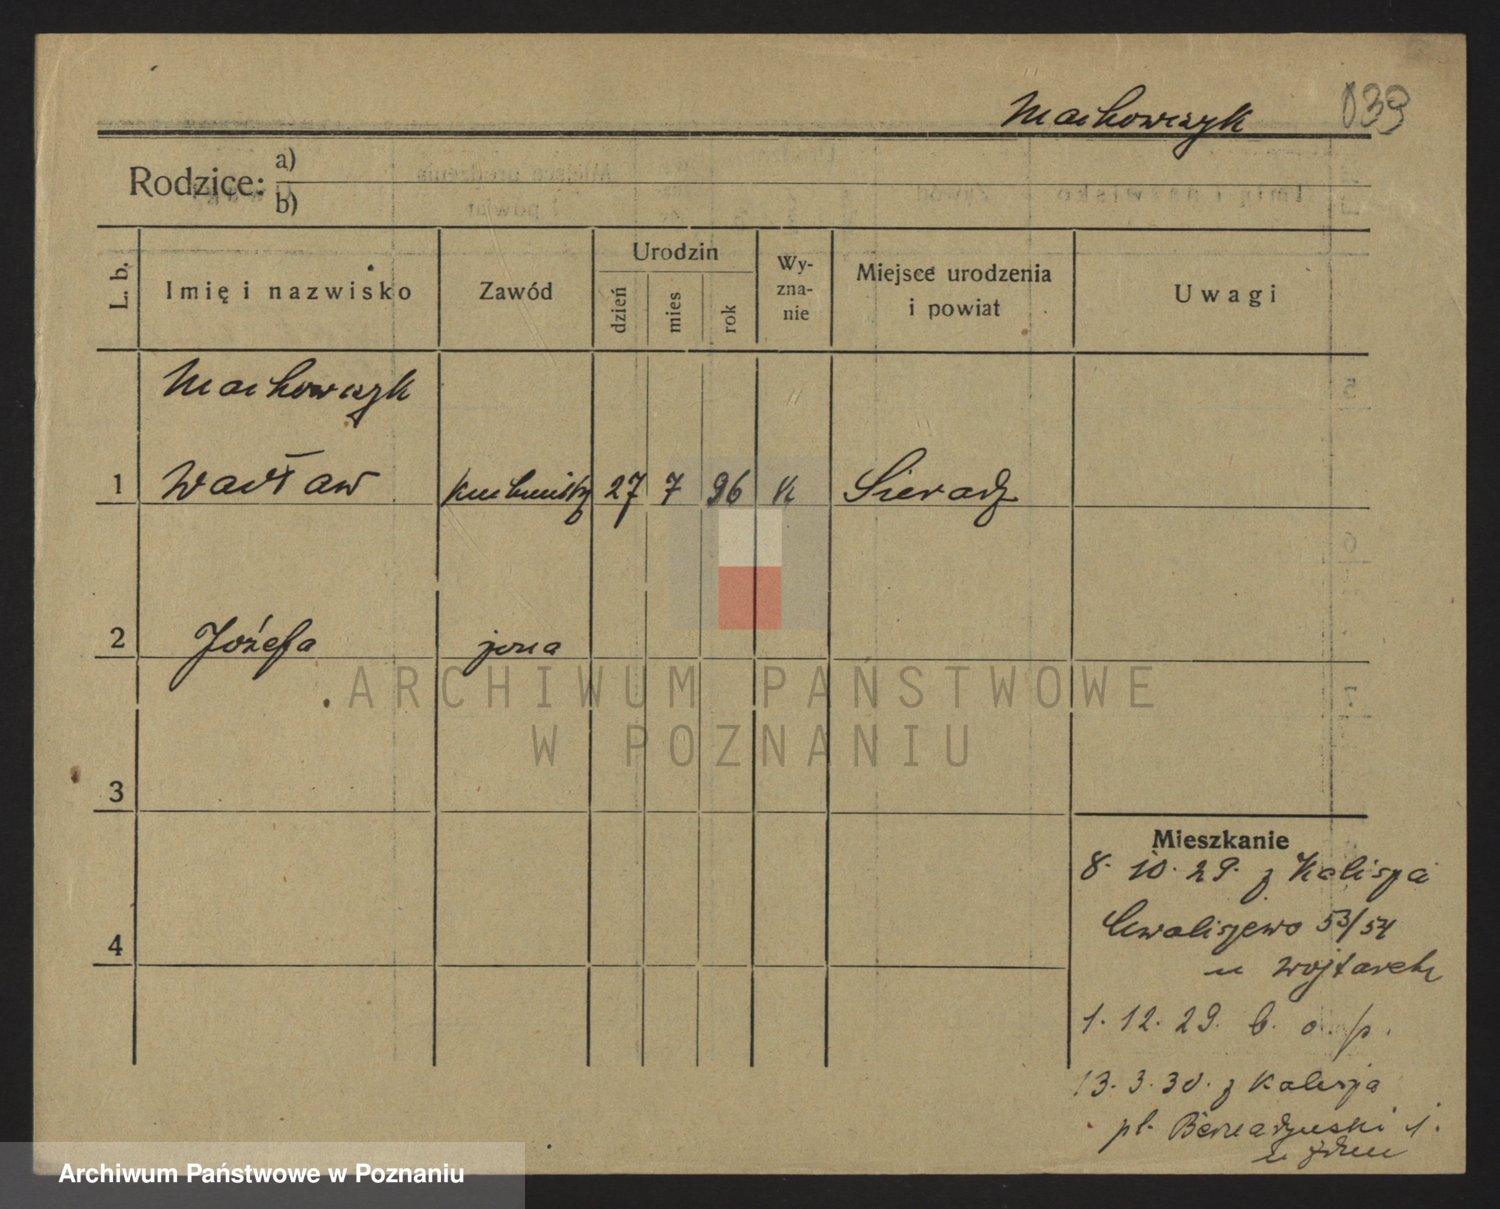 Machowczyk 039
Rodzice: a)
b)
L. b. Imię i nazwisko Zawód Urodzin dzień mies rok Wy-zna-nie Miejsce urodzenia i powiat Uwagi
Machowczyk
1 Wacław 27 7 96 K Sieradz
2 Józefa żona
3
4
Mieszkanie
8. 10. 29. z Kalisza
Chwaliszewo 53/54
u Wojtarek
1. 12. 29. b. o. p.
13. 3. 30. z Kalisza
pl. Bernadyński 1.
u
ARCHIWUM PAŃSTWOWE
W POZNANIU
Archiwum Państwowe w Poznaniu